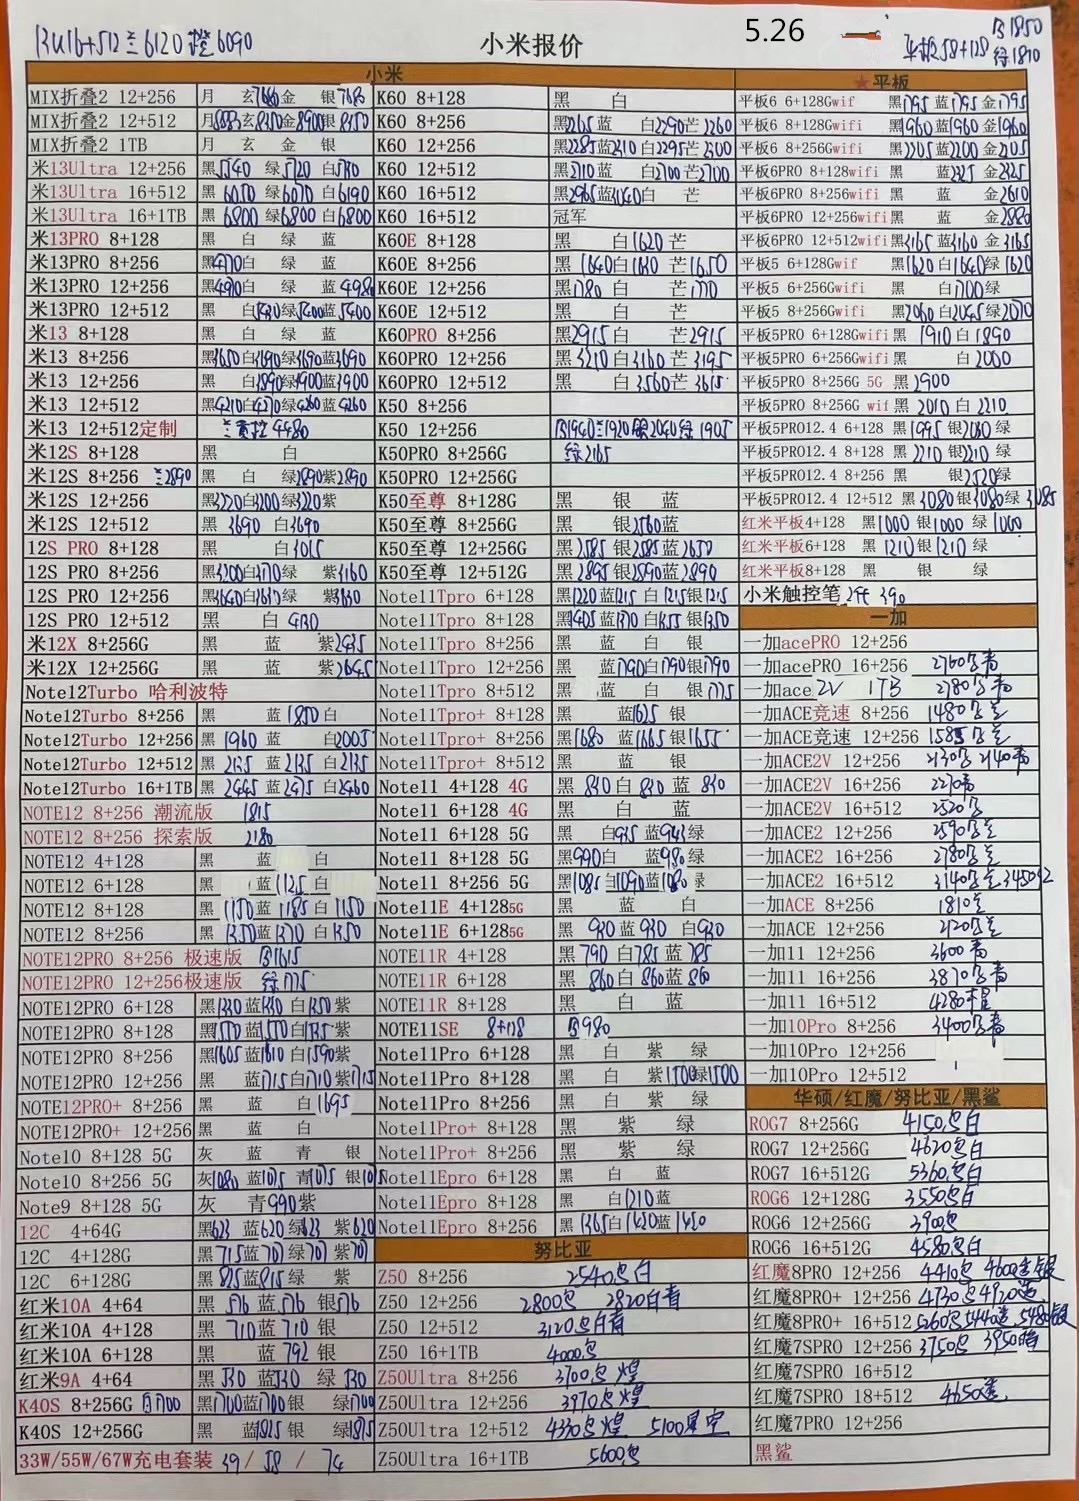 13U16+512兰6120橙6090
小米报价
5.26
平板58+128 黑1850
绿1810
小米
MIX折叠2 12+256 月 玄7680金 银7680
MIX折叠2 12+512
MIX折叠2 1TB 月 玄 金 银
米13Ultra 12+256
米13Ultra 16+512 黑6050 绿6070 白6190
米13Ultra 16+1TB 黑6800 绿6800 白6800
米13PRO 8+128 黑 白 绿 蓝
米13PRO 8+256 黑 白 绿 蓝
米13PRO 12+256
米13PRO 12+512
米13 8+128 黑 白 绿 蓝
米13 8+256
米13 12+256
米13 12+512 黑4210白4270绿4260蓝4260
米13 12+512定制 4480
米12S 8+128 黑 白
米12S 8+256 兰2890 黑 白 绿2890紫2890
米12S 12+256 黑3220白3200绿3220紫
米12S 12+512 黑3690 白3690
12S PRO 8+128 黑 白3015
12S PRO 8+256
12S PRO 12+256
12S PRO 12+512 黑 白
米12X 8+256G 黑 蓝 紫2435
米12X 12+256G 黑 蓝 紫2645
Note12Turbo 哈利波特
Note12Turbo 8+256 黑 蓝1850白
Note12Turbo 12+256 黑1960 蓝 白2005
Note12Turbo 12+512 黑2135 蓝2135 白2135
Note12Turbo 16+1TB 黑2445 蓝2475 白2460
NOTE12 8+256 潮流版 1815
NOTE12 8+256 探索版 2180
NOTE12 4+128 黑 蓝 白
NOTE12 6+128 黑 蓝1125白
NOTE12 8+128 黑1150蓝1185白1150
NOTE12 8+256 黑1350蓝1370白1350
NOTE12PRO 8+256 极速版 黑1615
NOTE12PRO 12+256极速版 绿1775
NOTE12PRO 6+128
NOTE12PRO 8+128
NOTE12PRO 8+256 黑1605蓝1610白1590紫
NOTE12PRO 12+256 黑 蓝1715白1710紫1715
NOTE12PRO+ 8+256 黑 蓝 白1695
NOTE12PRO+ 12+256 黑 蓝 白
Note10 8+128 5G 灰 蓝 青 银
Note10 8+256 5G 灰1080 蓝1075 青1075 银1075
Note9 8+128 5G 灰 青990紫
12C 4+64G 黑623 蓝620绿623 紫620
12C 4+128G 黑715蓝707绿707紫707
12C 6+128G 黑815蓝815绿 紫
红米10A 4+64 黑576蓝576 银576
红米10A 4+128 黑710蓝710银
红米10A 6+128 黑 蓝792银
红米9A 4+64 黑530 蓝530 绿530
K40S 8+256G 白1700 黑1700蓝1700银 绿1700
K40S 12+256G 黑 蓝1815银 绿1815
33W/55W/67W充电套装 39/58/74
K60 8+128 黑 白
K60 8+256 黑2265蓝 白2290芒2260
K60 12+256 黑2285蓝2310白2295芒2300
K60 12+512 黑2710蓝 白2700芒2700
K60 16+512 黑2965蓝3040白 芒
K60 16+512 冠军
K60E 8+128 黑 白1620芒
K60E 8+256 黑1640白1630芒1650
K60E 12+256 黑1780 白 芒1770
K60E 12+512 黑 白 芒
K60PRO 8+256 黑2915 白 芒2915
K60PRO 12+256 黑3210白3160芒3195
K60PRO 12+512 黑 白3560芒3615
K50 8+256
K50 12+256 黑1940兰1920银2040绿1905
K50PRO 8+256G 绿2165
K50PRO 12+256G
K50至尊 8+128G 黑 银 蓝
K50至尊 8+256G 黑 银2560蓝
K50至尊 12+256G 黑2585银2585蓝2650
K50至尊 12+512G 黑2895银2890蓝2890
Note11Tpro 6+128 黑1220蓝1215白1215银1215
Note11Tpro 8+128 黑1405蓝1370白1355银1350
Note11Tpro 8+256 黑 蓝 白 银
Note11Tpro 12+256 黑 蓝1790白1790银1790
Note11Tpro 8+512 黑 蓝 白 银1775
Note11Tpro+ 8+128 黑 蓝1625 银
Note11Tpro+ 8+256 黑1680 蓝1665银1655
Note11Tpro+ 8+512 黑 蓝 银
Note11 4+128 4G 黑830白830蓝830
Note11 6+128 4G 黑 白 蓝
Note11 6+128 5G 黑 白935蓝943绿
Note11 8+128 5G 黑990白 蓝980绿
Note11 8+256 5G 黑1085白1090蓝1080绿
Note11E 4+1285G 黑 蓝 白
Note11E 6+1285G 黑930蓝930 白930
NOTE11R 4+128 黑790白785蓝785
NOTE11R 6+128 黑860白860蓝860
NOTE11R 8+128 黑 白 蓝
NOTE11SE 8+128 黑980
Note11Pro 6+128 黑 白 紫 绿
Note11Pro 8+128 黑 白 紫1500绿1500
Note11Pro 8+256 黑 白 紫 绿
Note11Pro+ 8+128 黑 紫 绿
Note11Pro+ 8+256 黑 紫 绿
Note11Epro 6+128 黑 白 蓝
Note11Epro 8+128 黑 白1210蓝
Note11Epro 8+256 黑1365白1420蓝1420
努比亚
Z50 8+256 2540黑白
Z50 12+256 2800黑 2820白青
Z50 12+512 3120黑白青
Z50 16+1TB 4000黑
Z50Ultra 8+256 3700黑煌
Z50Ultra 12+256 3970黑煌
Z50Ultra 12+512 4330黑煌 5100星空
Z50Ultra 16+1TB 5600黑
★平板
平板6 6+128Gwif 黑1795蓝1795金1795
平板6 8+128Gwifi 黑1960蓝1960金1960
平板6 8+256Gwifi 黑2205蓝2200金2205
平板6PRO 8+128wifi 黑 蓝2325金2325
平板6PRO 8+256wifi 黑 蓝 金2610
平板6PRO 12+256wifi 黑 蓝 金2880
平板6PRO 12+512wifi 黑3165蓝3160金3165
平板5 6+128Gwif 黑1620白1640绿1620
平板5 6+256Gwifi 黑 白1700绿
平板5 8+256Gwifi 黑2060白2045绿2070
平板5PRO 6+128Gwifi 黑 1910白1890
平板5PRO 6+256Gwifi 黑 白2000
平板5PRO 8+256G 5G 黑2900
平板5PRO 8+256G wif 黑2010白2210
平板5PRO12.4 6+128 黑1995银2080绿
平板5PRO12.4 8+128 黑2210银2210绿
平板5PRO12.4 8+256 黑 银2520绿
平板5PRO12.4 12+512 黑3080银3080绿3085
红米平板4+128 黑1000银1000绿1000
红米平板6+128 黑1210银1210绿
红米平板8+128 黑 银 绿
小米触控笔 2代 390
一加
一加acePRO 12+256
一加acePRO 16+256 2760黑青
一加ace 2V 1TB 2780黑青
一加ACE竞速 8+256 1480黑兰
一加ACE竞速 12+256 1585黑兰
一加ACE2V 12+256 2130黑2140青
一加ACE2V 16+256 2270青
一加ACE2V 16+512 2520黑
一加ACE2 12+256 2590黑兰
一加ACE2 16+256 2780黑兰
一加ACE2 16+512 3140黑兰
一加ACE 8+256 1810兰
一加ACE 12+256 2120黑兰
一加11 12+256 3600青
一加11 16+256 3870黑青
一加11 16+512
一加10Pro 8+256 3400黑青
一加10Pro 12+256
一加10Pro 12+512
华硕/红魔/努比亚/黑鲨
ROG7 8+256G 4150黑白
ROG7 12+256G 4620黑白
ROG7 16+512G 5360黑白
ROG6 12+128G 3550黑白
ROG6 12+256G 3900黑
ROG6 16+512G 4580黑白
红魔8PRO 12+256 4410黑 4600透银
红魔8PRO+ 12+256 4730黑4920透
红魔8PRO+ 16+512 5260黑5440透5480银
红魔7SPRO 12+256 3750黑
红魔7SPRO 16+512
红魔7SPRO 18+512 4650透
红魔7PRO 12+256
黑鲨